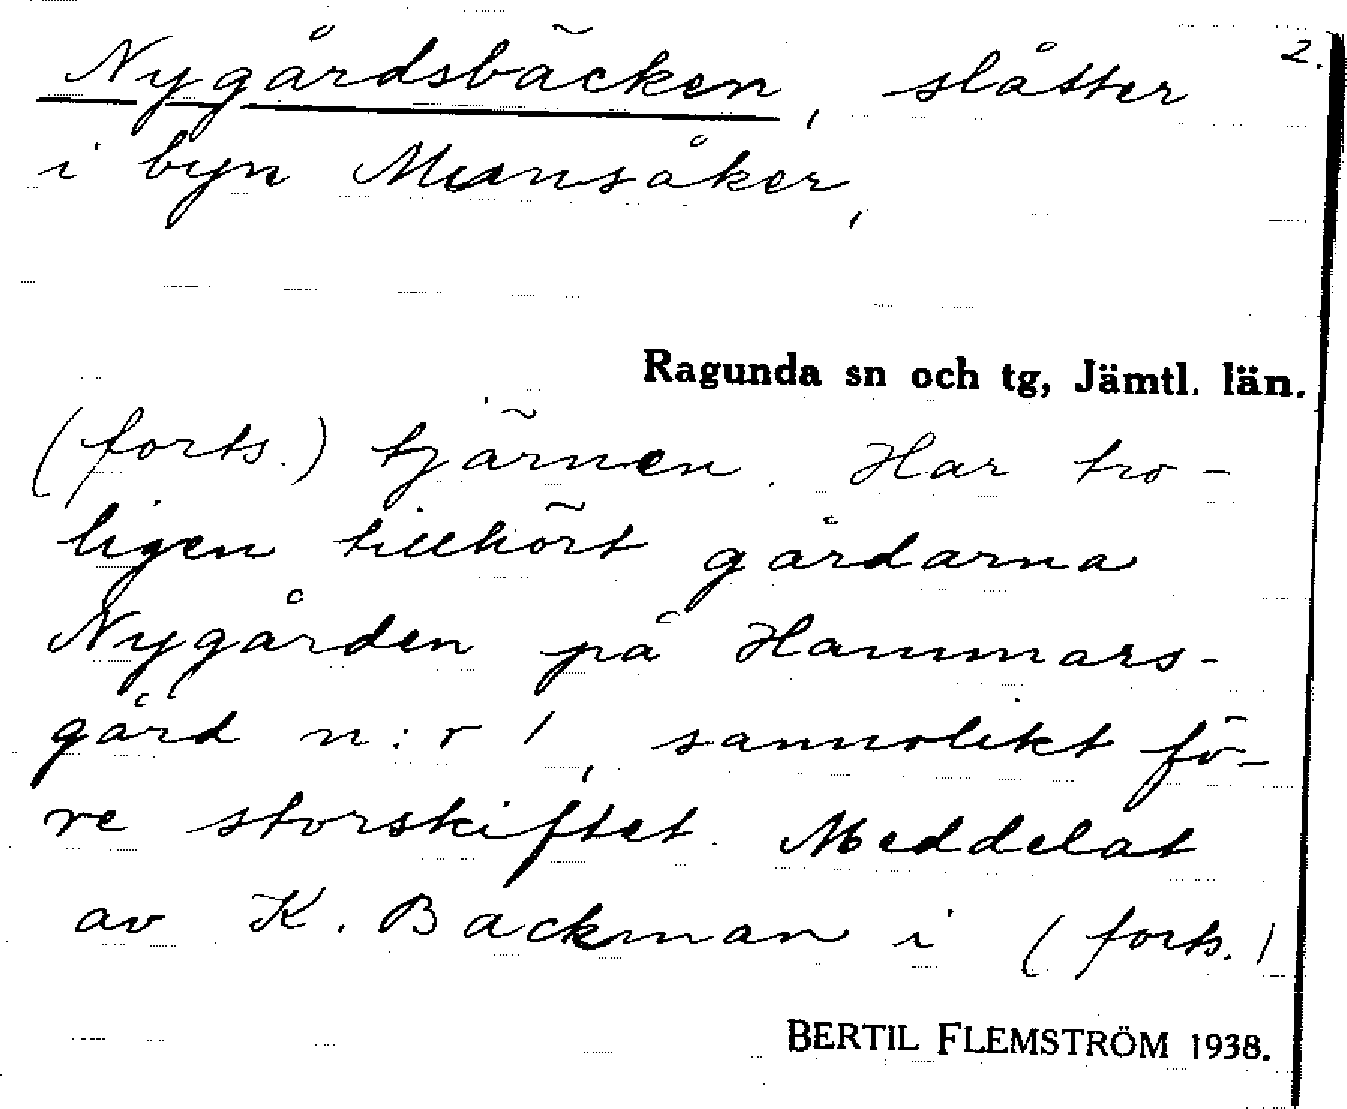 2.
Nygårdsbäcken, slåtter
i byn Munsåker,
Ragunda sn och tg, Jämtl. län.
(forts.) tjärnen. Har tro-
ligen tillhört gårdarna
Nygården på Hammars-
gård n:r 1, sannolikt fö-
re storskiftet. Meddelat
av K. Backman i (forts.)
BERTIL FLEMSTRÖM 1938.